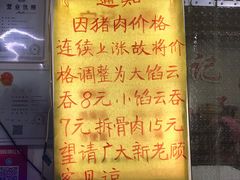 营业执照
通知
因猪肉价格
连续上涨故将价
格调整为大馅云
吞8元.小馅云吞
7元.拆骨肉15元
望请广大新老顾
客见谅
记